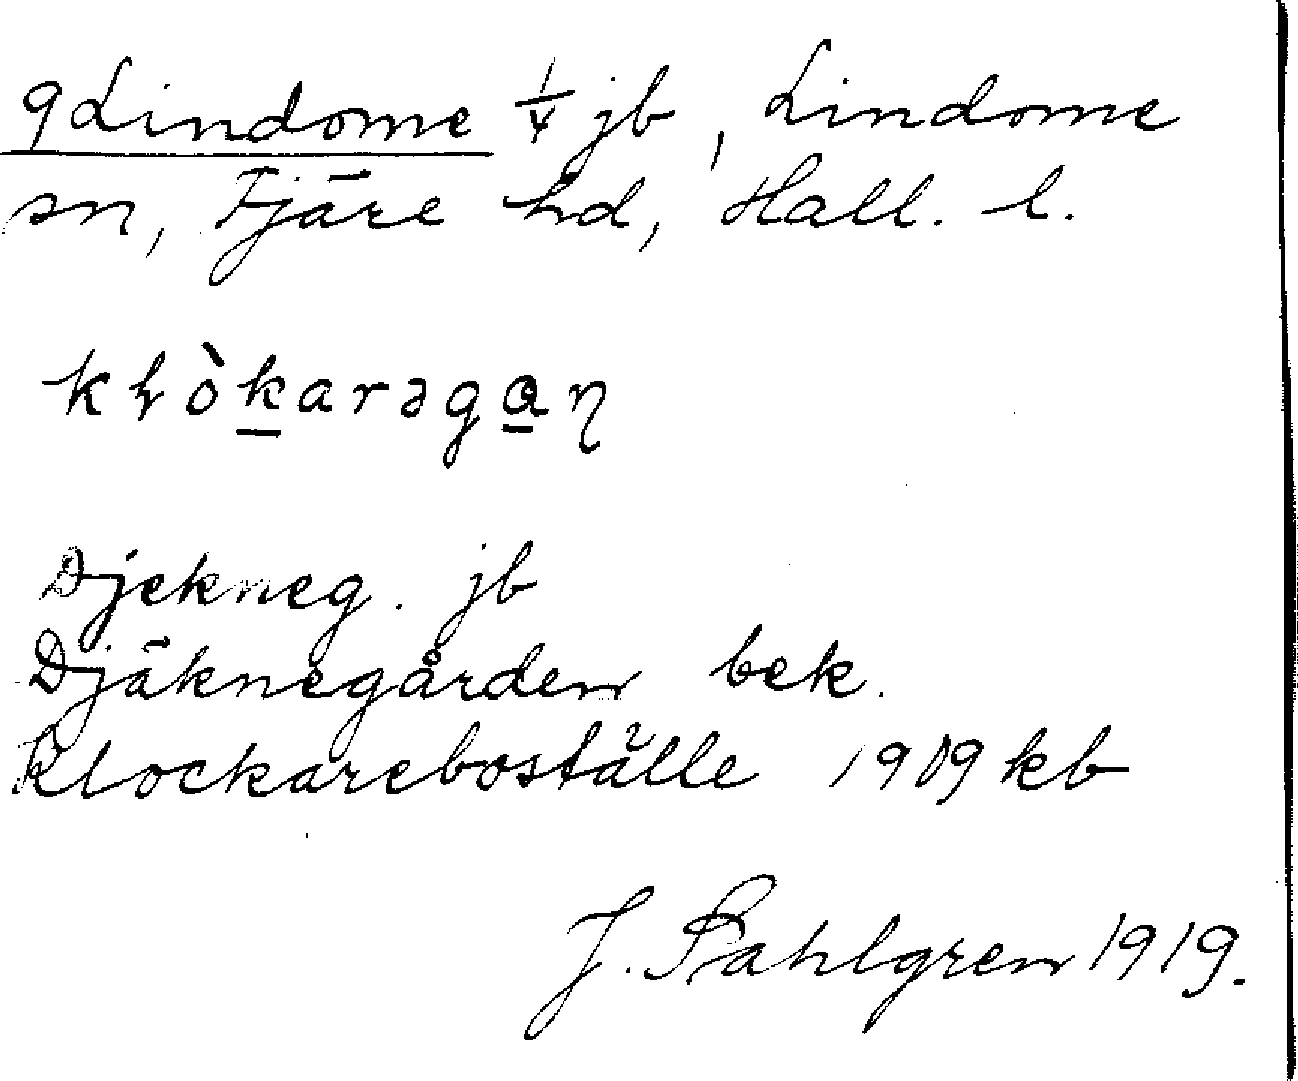 9 Lindome 1/4 jb, Lindome
sn, Fjäre hd, Hall. l.
Djekneg. jb
Djäknegården bek.
Klockareboställe 1909 kb
J. Sahlgren 1919.